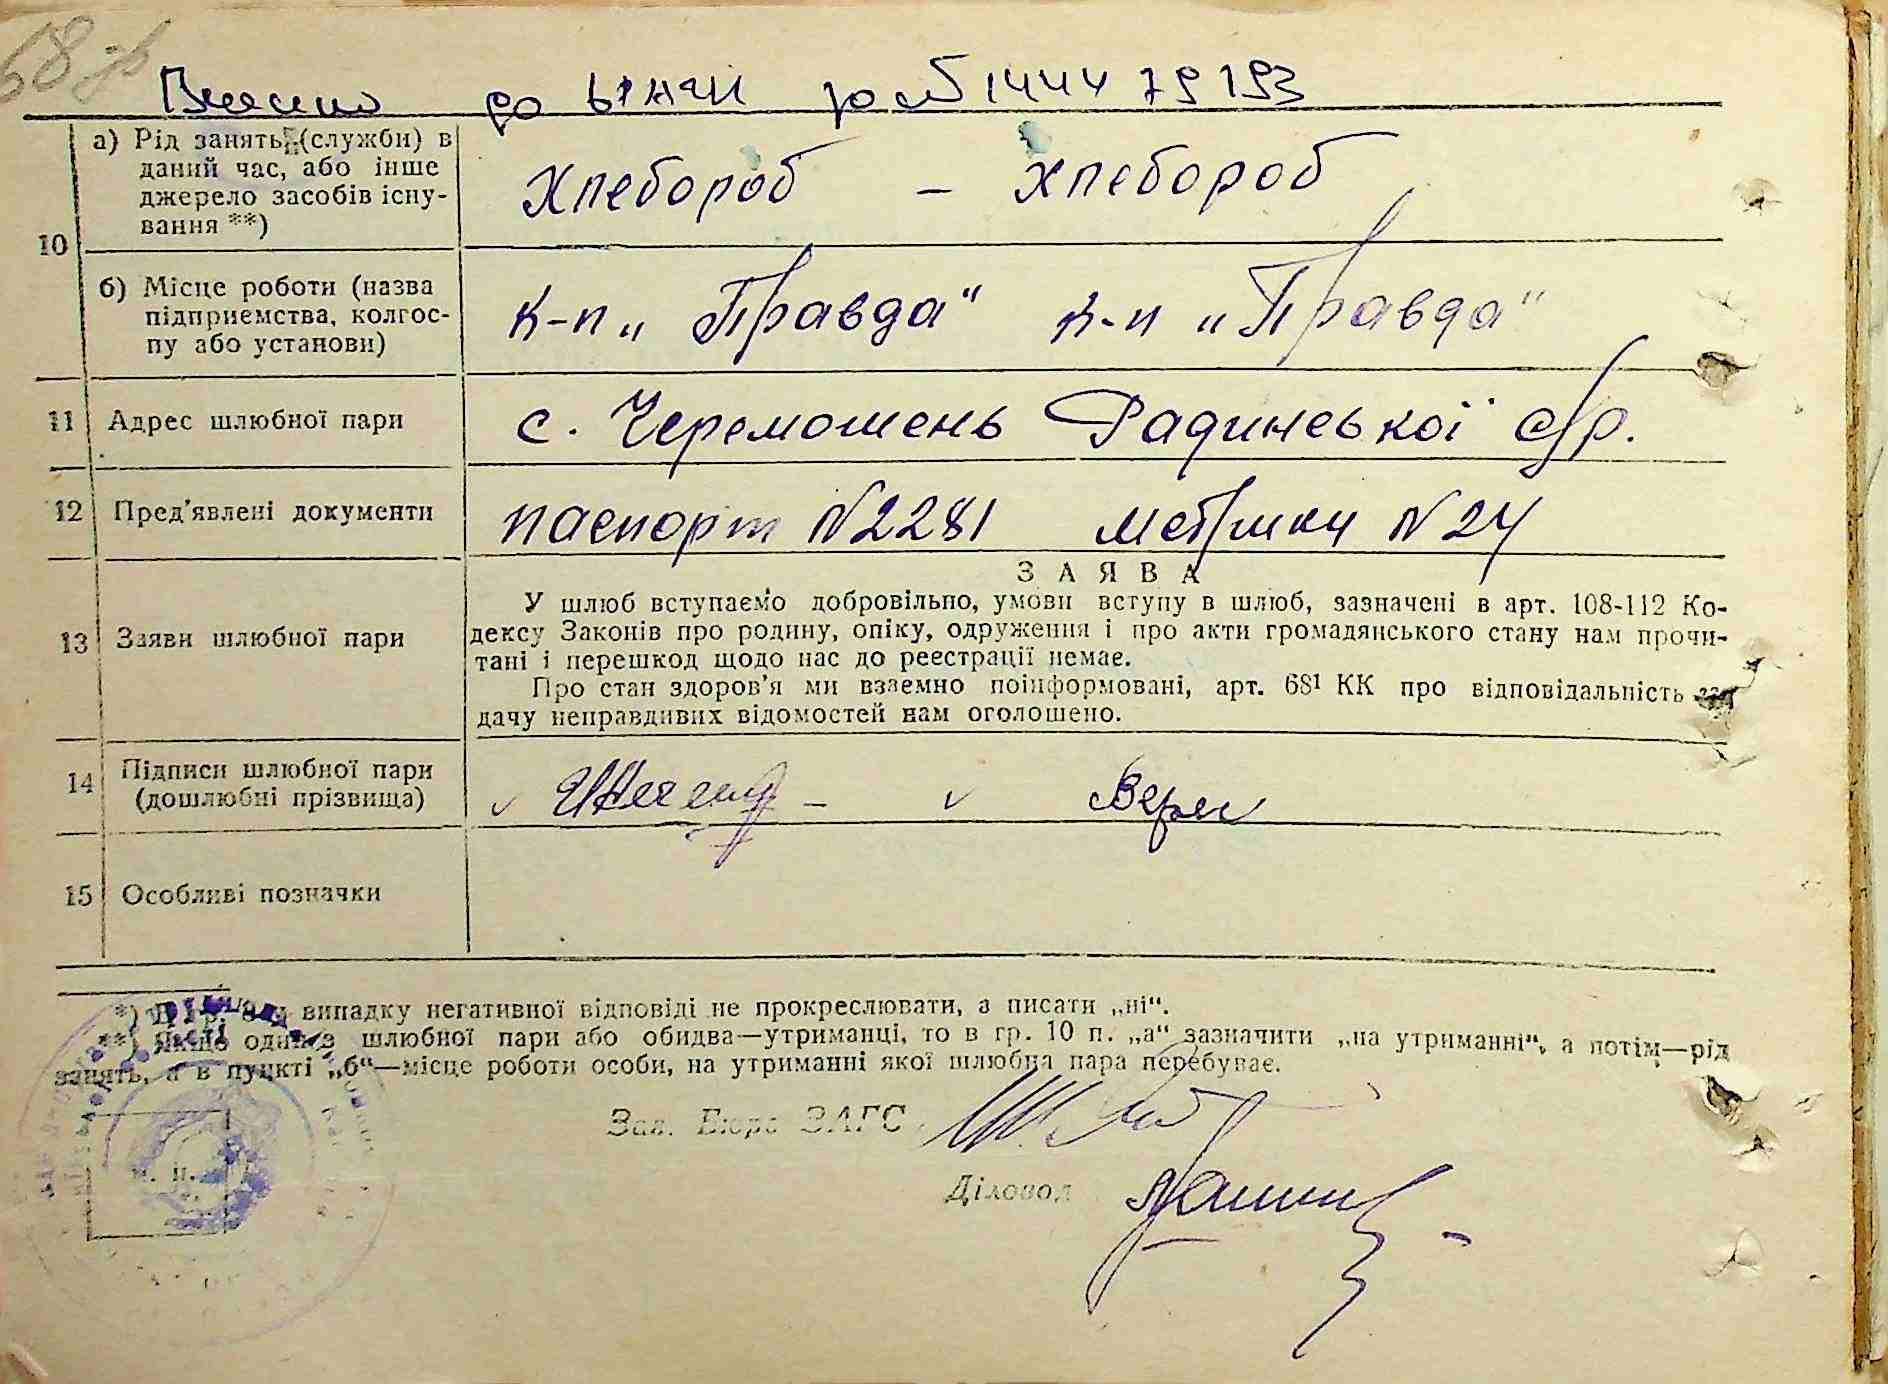 68 зв
Внесено до
10
а) Рід занять (служби) в
даний час, або інше
джерело засобів існу-
вання **)
Хлебороб – Хлебороб
б) Місце роботи (назва
підприємства, колгос-
пу або установи)
к-п „Правда“ к-п „Правда“
11 Адрес шлюбної пари
с. Черемошень
12 Пред'явлені документи
паспорт №2281 метрики №24
13 Заяви шлюбної пари
ЗАЯВА
У шлюб вступаємо добровільно, умови вступу в шлюб, зазначені в арт. 108-112 Ко-
дексу Законів про родину, опіку, одруження і про акти громадянського стану нам прочи-
тані і перешкод щодо нас до реєстрації немає.
Про стан здоров'я ми взаємно поінформовані, арт. 68¹ КК про відповідальність за
дачу неправдивих відомостей нам оголошено.
14 Підписи шлюбної пари
(дошлюбні прізвища)
15 Особливі позначки
випадку негативної відповіді не прокреслювати, а писати „ні“.
**) Якщо один з шлюбної пари або обидва—утриманці, то в гр. 10 п. „а“ зазначити „на утриманні“, а потім—рід
занять, а в пункті „б“—місце роботи особи, на утриманні якої шлюбна пара перебуває.
Зав. Бюро ЗАГС
Діловод
м. п.